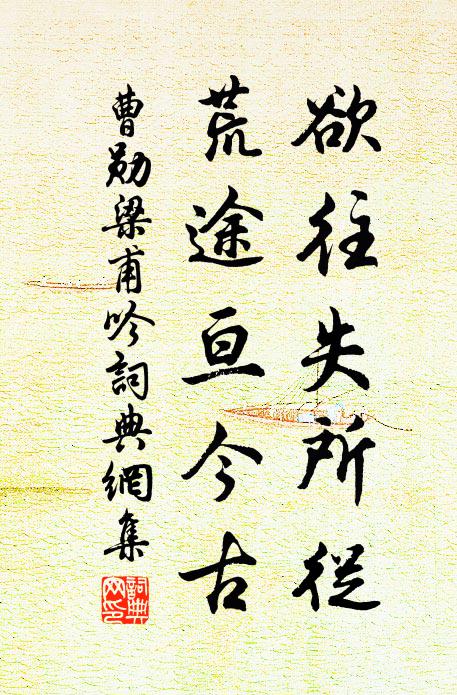 欲往失所從
荒途亘今古
曹勛梁甫吟詞典網集
詞典
网印